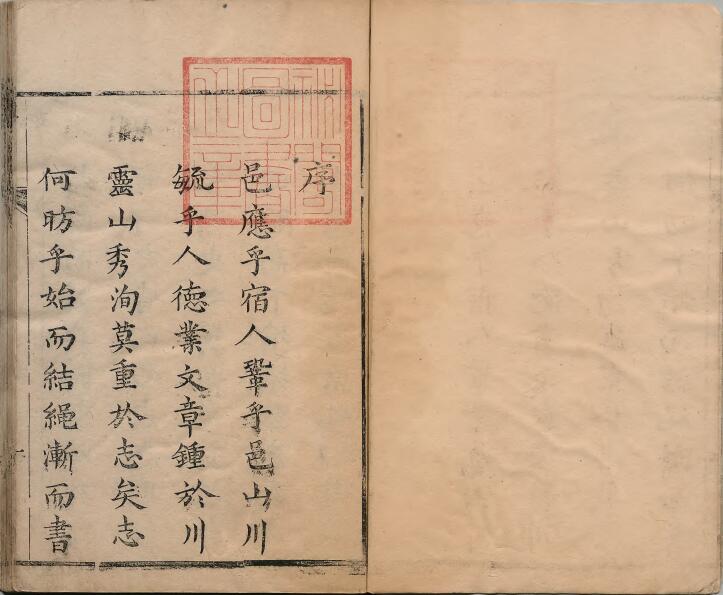 序
邑應乎宿人鞏乎邑山川
毓乎人徳業文章鍾於川
靈山秀洵莫重於志矣志
何昉乎始而結繩漸而書